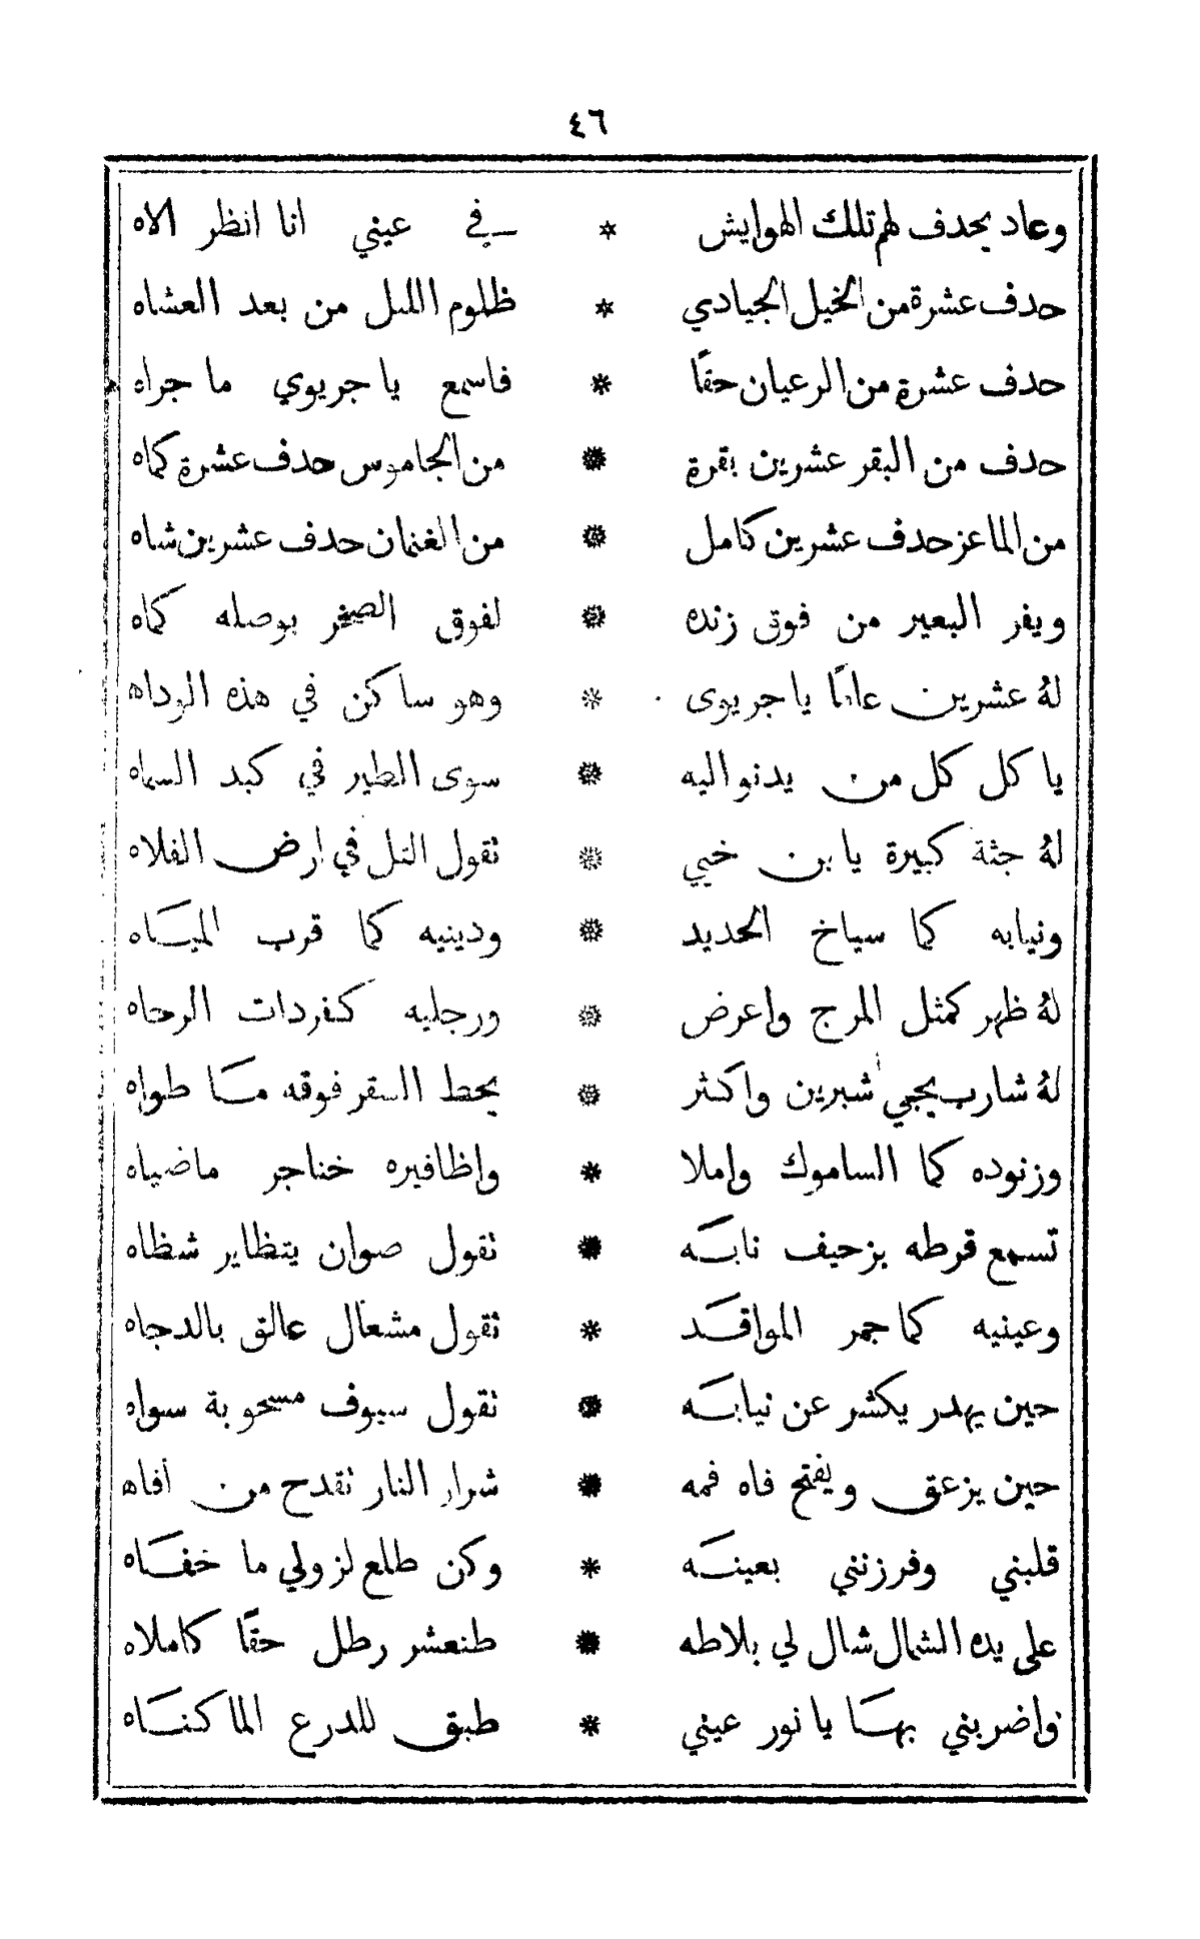 ٤٦
وعاد يحدف لهم تلك الهوايش * في عيني انا انظر الاه
حدف عشرة من الخيل الجيادي * ظلوم الليل من بعد العشاه
حدف عشرة من الرعيان حقًا * فاسمع يا جريوي ما جراه
حدف من البقر عشرين بقرة * من الجاموس حدف عشرة كماه
من الماعز حدف عشرين كامل * من الغنمان حدف عشرين شاه
ويفر البعير من فوق زنده * لفوق الصخر بوصله كماه
لهُ عشرين عامًا يا جريوى * وهو ساكن في هذه الوداه
يا كل كل من يدنو اليه * سوى الطير في كبد السماه
لهُ جثة كبيرة يا بن خيي * نقول التل في ارض الفلاه
ونيابه كما سياخ الحديد * ودينيه كما قرب المياه
لهُ ظهر كمثل المرج واعرض * ورجليه كفردات الرحاه
لهُ شارب يجي شبرين واكثر * يحط السقر فوقه ما طواه
وزنوده كما الساموك واملا * واظافيره خناجر ماضياه
تسمع قرطه بزحيف نابه * نقول صوان يتظاير شظاه
وعينيه كما جمر المواقد * نقول مشعال عالق بالدجاه
حين يهدر يكشر عن نيابه * نقول سيوف مسحوبة سواه
حين يزعق ويفتح فاه فمه * شرار النار نقدح من افاه
قلبني وفرزنني بعينه * وكن طلع لزولي ما خفاه
على يده الشمال شال لي بلاطه * طنعشر رطل حقًا كاملاه
واضربني بها يا نور عيني * طبق للدرع الماكناه